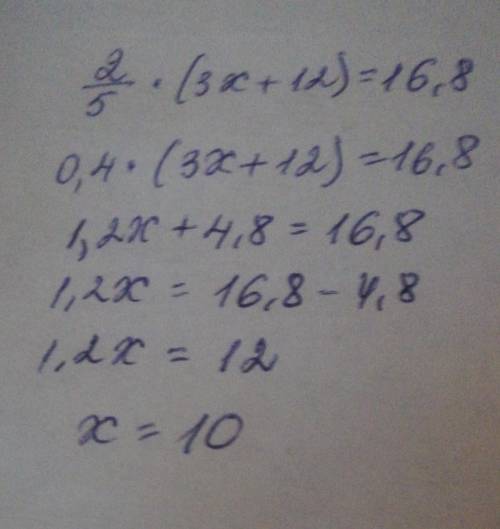 2/5 · (3x + 12) = 16,8
0,4 · (3x + 12) = 16,8
1,2x + 4,8 = 16,8
1,2x = 16,8 - 4,8
1,2x = 12
x = 10